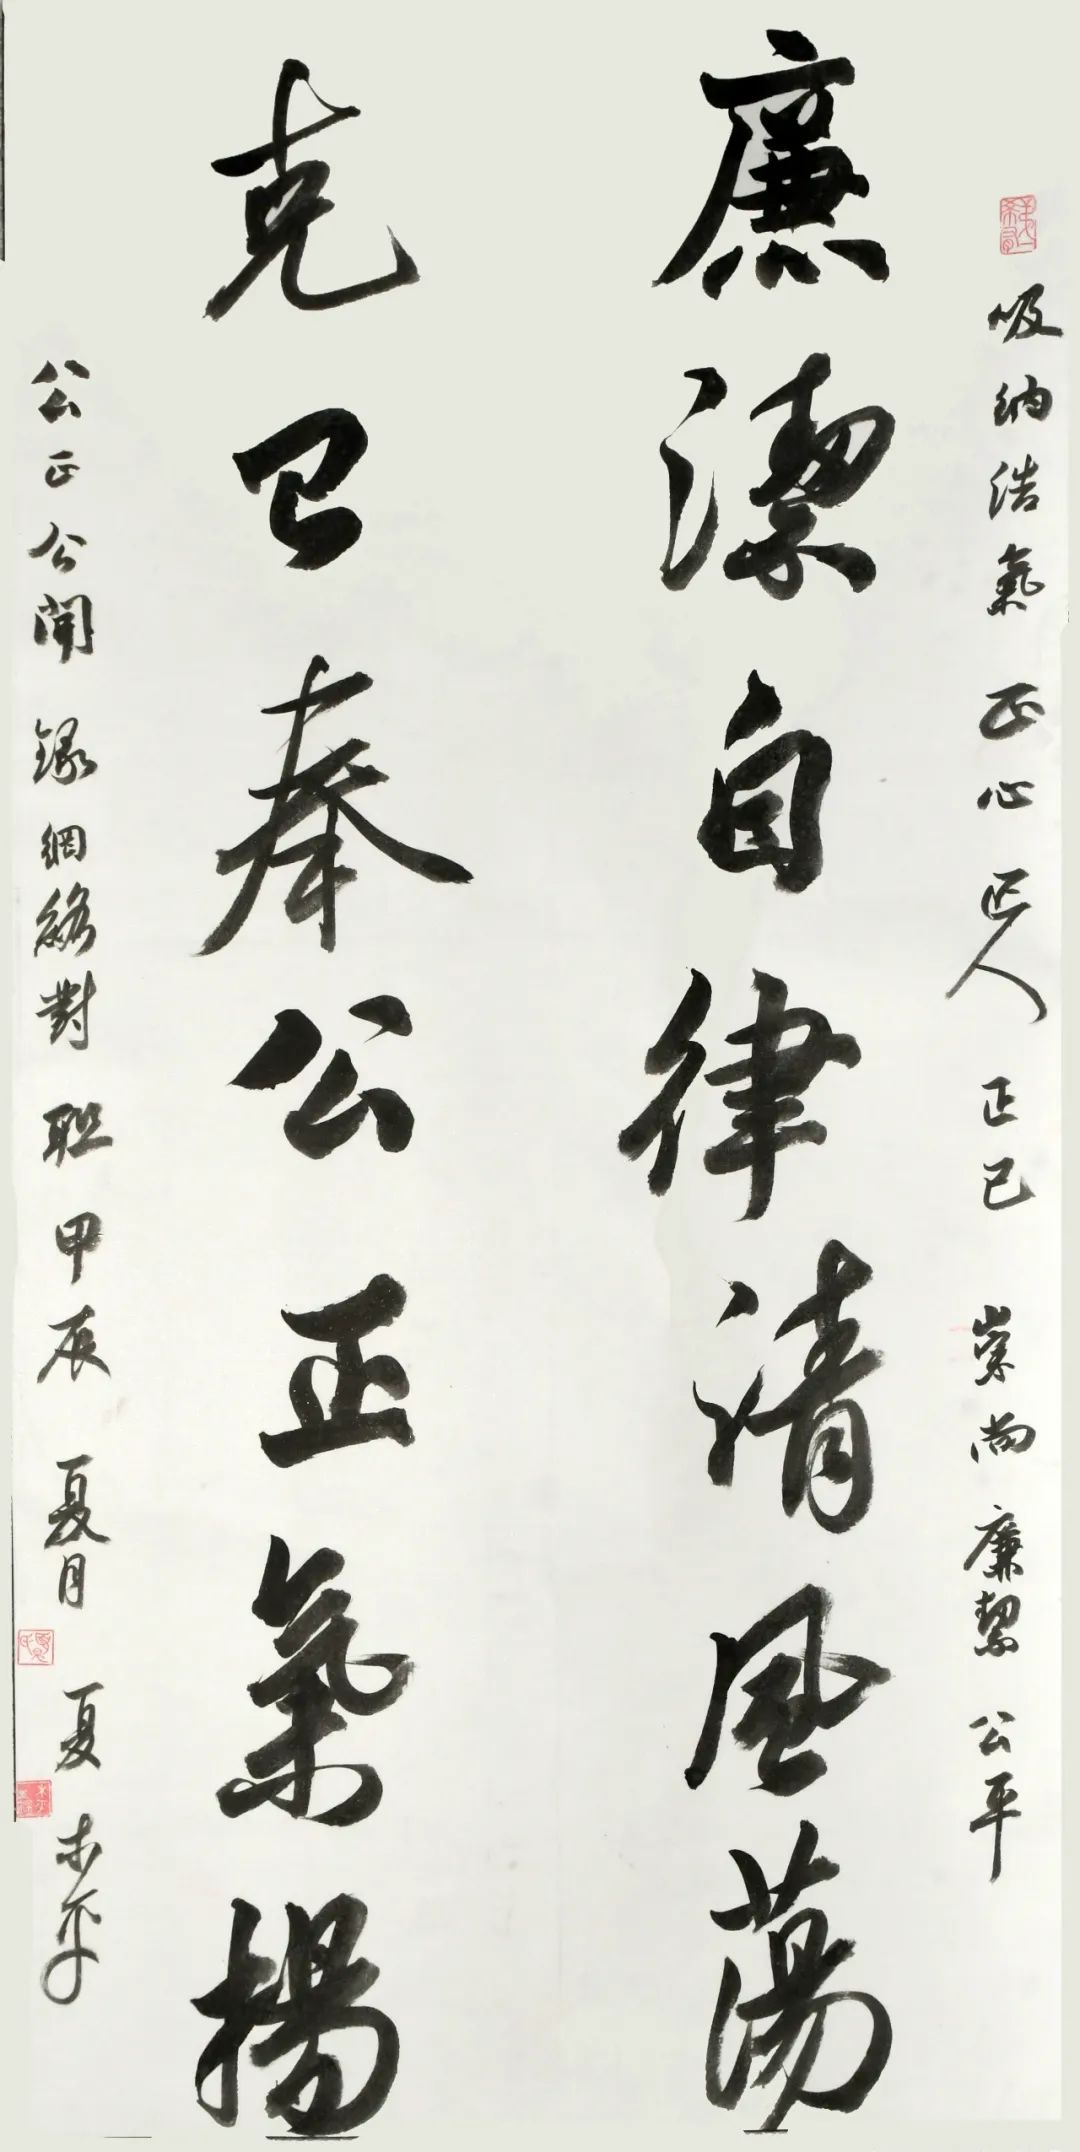 吸納浩氣 正心正人 正己 崇尚廉絜 公平
廉潔自律清風蕩
克己奉公正氣揚
公正公開 録網絡對联 甲辰 夏月 夏木平